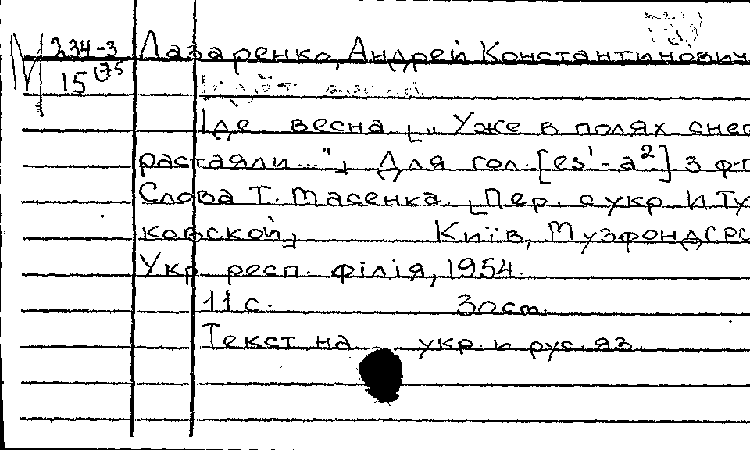 234-3 Лазаренко, Андрей Константинович
15
Іде весна ["Уже в полях снег
растаяли..."]. Для гол. [es¹-a²] з ф-п
Слова Т. Масенка [Пер. с укр. И. Ту
ковской]. Київ, Музфонд СРС
Укр. респ. філія, 1954.
11 с. 30 cm.
Текст на укр. и рус. яз.